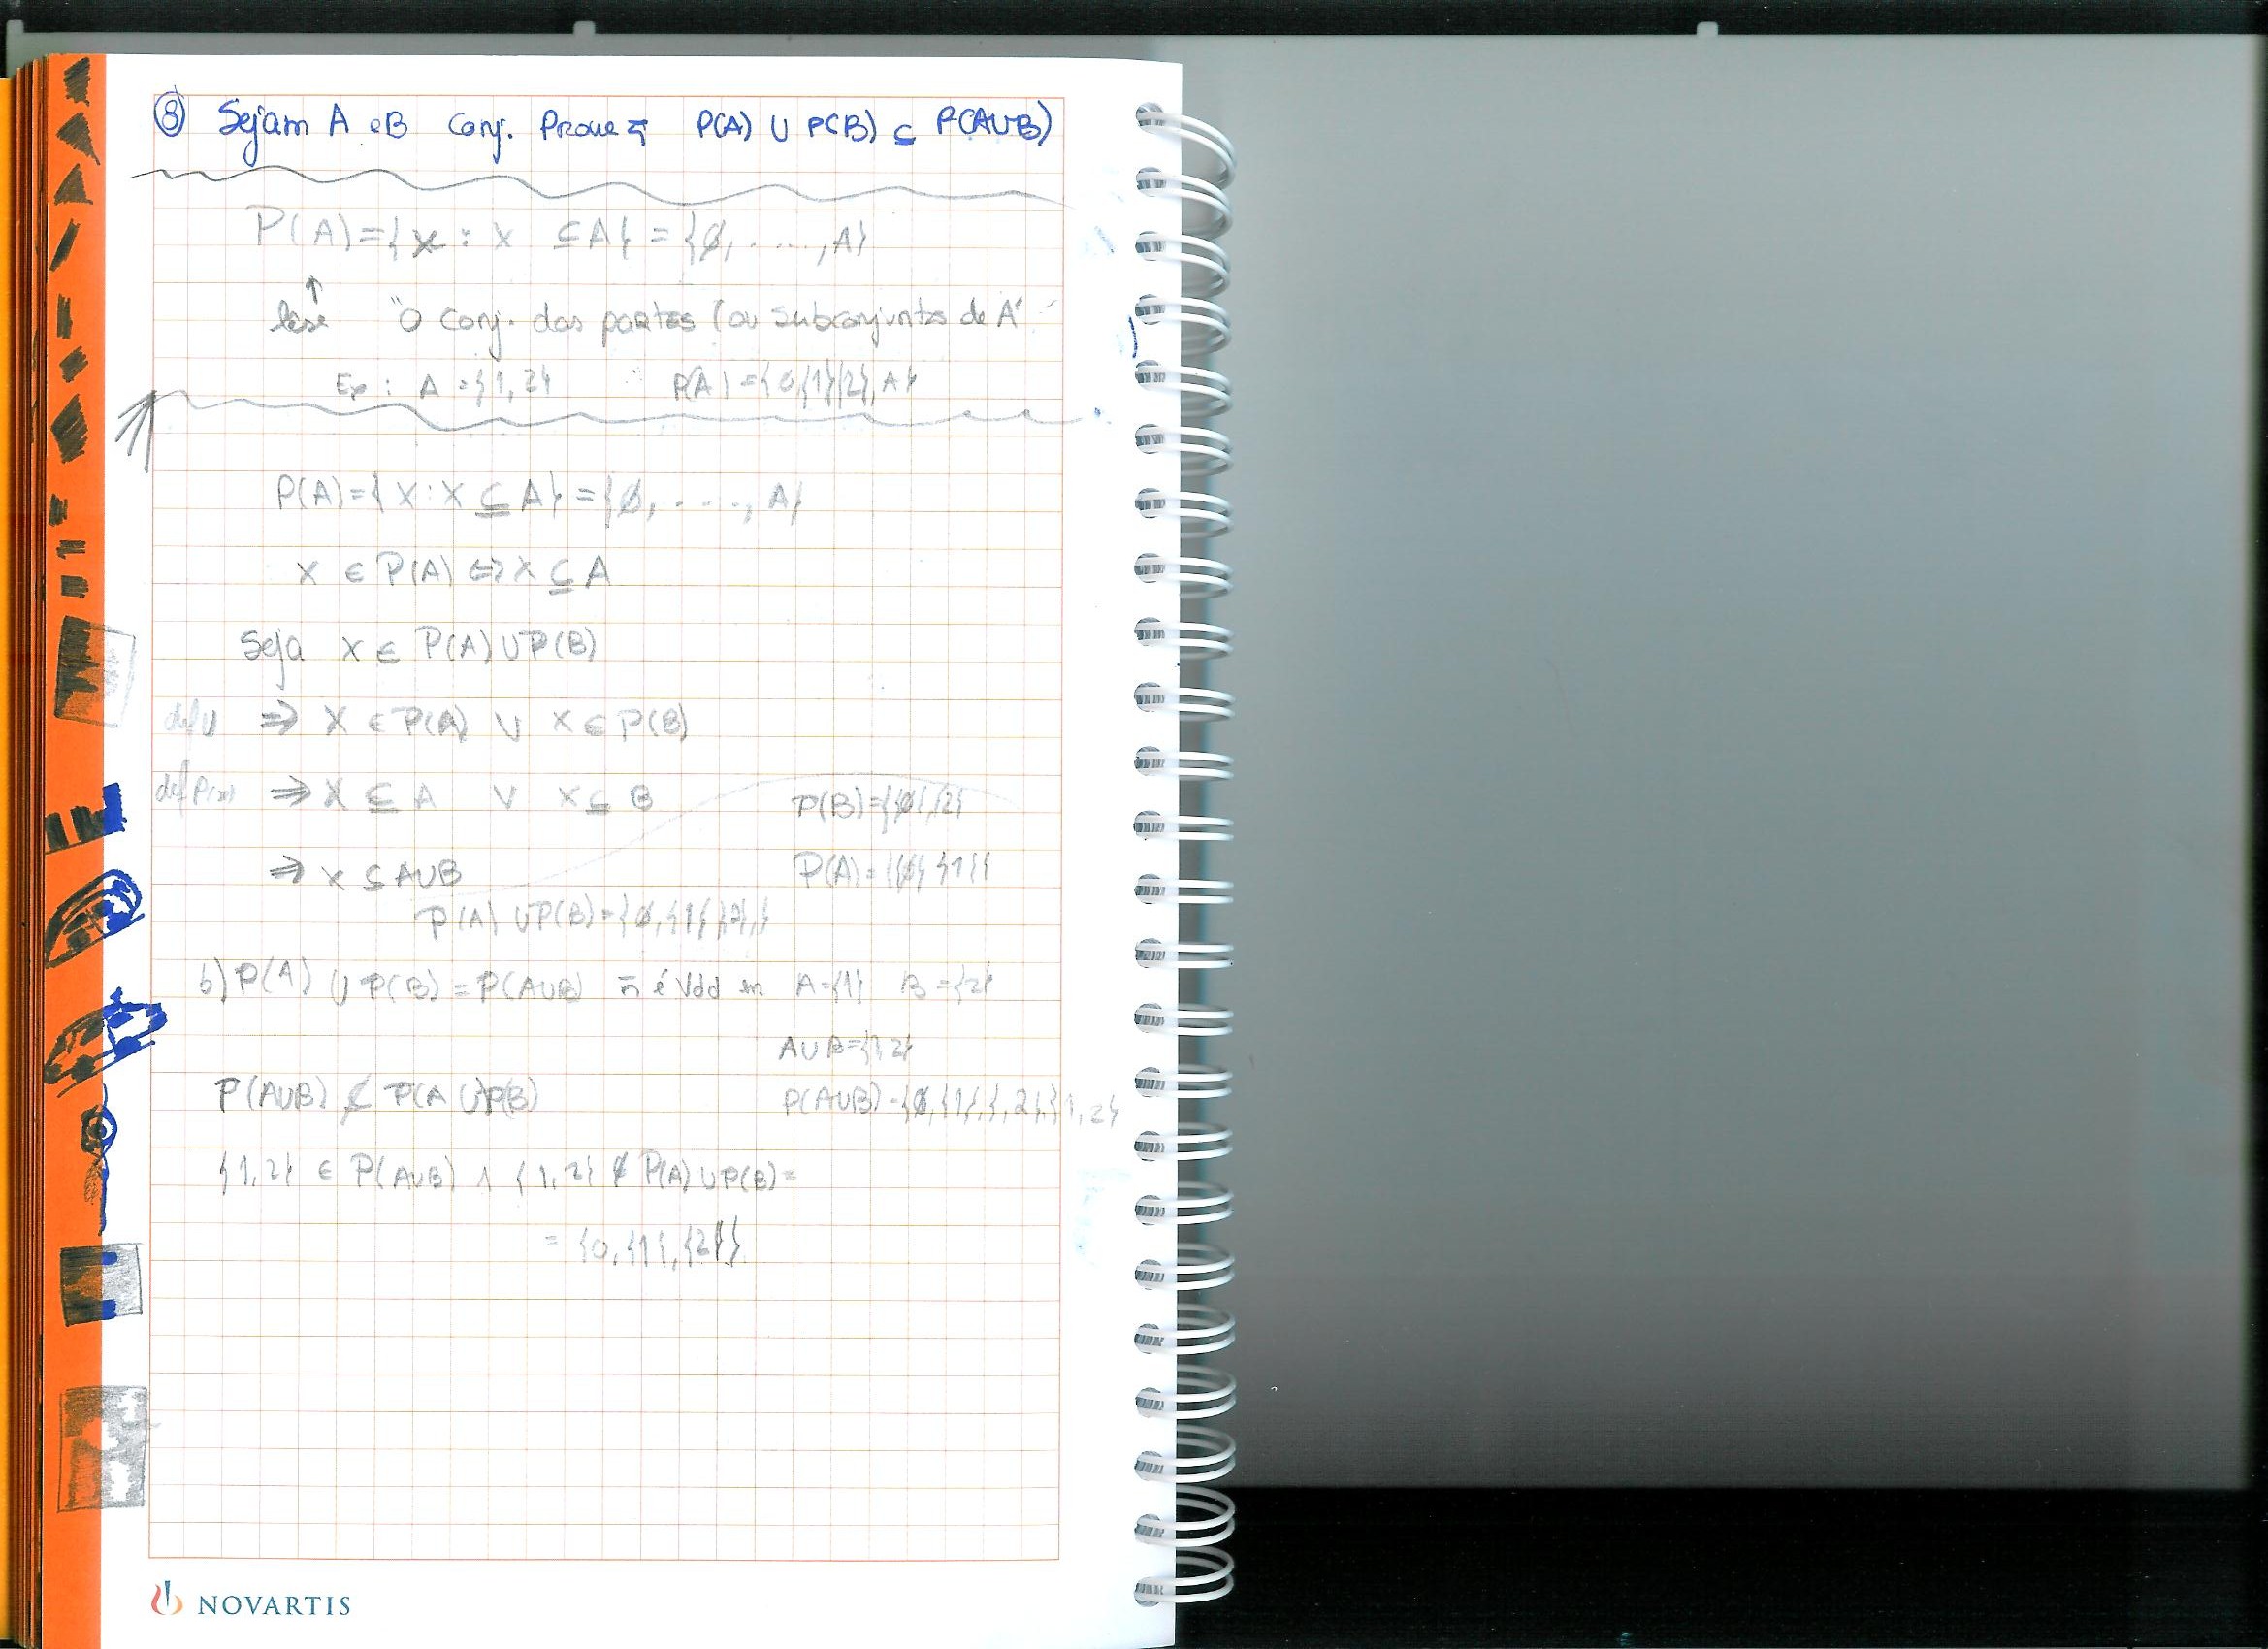 ⑧ Sejam A e B Conj. Prove q̄ P(A) ∪ P(B) ⊆ P(A∪B)
P(A)={x : x ⊆ A} = {ø, ....., A}
"O Conj. das partes (ou subconjuntos de A"
Ex: A = {1,2} ∴ P(A) = {ø,{1}{2},A}
P(A)={X : X ⊆ A} = {ø, ....., A}
X ∈ P(A) ⇔ X ⊆ A
Seja X ∈ P(A) ∪ P(B)
def ∪ ⇒ X ∈ P(A) ∨ X ∈ P(B)
def P(x) ⇒ X ⊆ A ∨ X ⊆ B
P(B)={{ø},{2}
⇒ X ⊆ A∪B
P(A)={{ø},{1}}
P(A) ∪ P(B)={ø,{1},{2},}
b) P(A) ∪ P(B) = P(A∪B) n̄ é Vdd A={1} B={2}
A∪B={1,2}
P(A∪B) ⊄ P(A ∪ P(B)
P(A∪B)={ø,{1},{,2},{1,2}
{1,2} ∈ P(A∪B) ∧ {1,2} ∉ P(A) ∪ P(B) =
= {ø,{1},{2}}
NOVARTIS